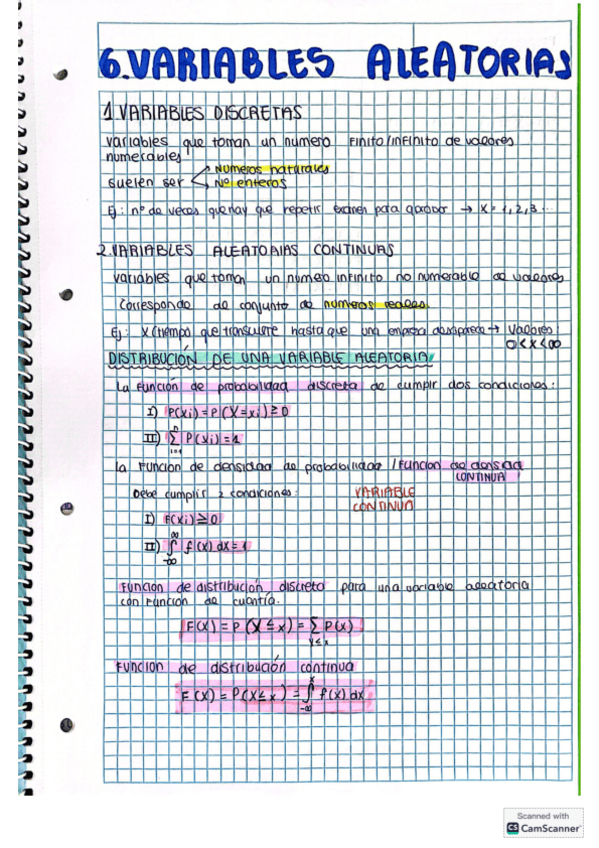 6.VARIABLES ALEATORIAS
1.VARIABLES DISCRETAS
variables que toman un numero finito/infinito de valores
numerables
suelen ser
Números naturales
Nº enteros
Ej: nº de veces que hay que repetir examen para aprobar → X = 1,2,3...
2.VARIABLES ALEATORIAS CONTINUAS
variables que toman un numero infinito no numerable de valores
Corresponde al conjunto de números reales.
Ej: X (tiempo que transcurre hasta que una empresa desaparece → Valores:
0<x<∞
DISTRIBUCIÓN DE UNA VARIABLE ALEATORIA
La función de probabilidad discreta de cumplir dos condiciones:
I) P(xi) = P(X=xi) ≥ 0
II) n∑i=1 P(xi) = 1
La Función de densidad de probabilidad / Función de densidad
CONTINUA
Debe cumplir 2 condiciones:
VARIABLE
CONTINUA
I) F(xi) ≥ 0
II) ∫-∞∞ f(x) dx = 1
Función de distribución discreta para una variable aleatoria
con Función de cuantía.
F(X) = P(X ≤ x) = ∑ P(x)
Función de distribución continua
F(X) = P(X ≤ x) = ∫-∞x f(x) dx
Scanned with
CS CamScanner